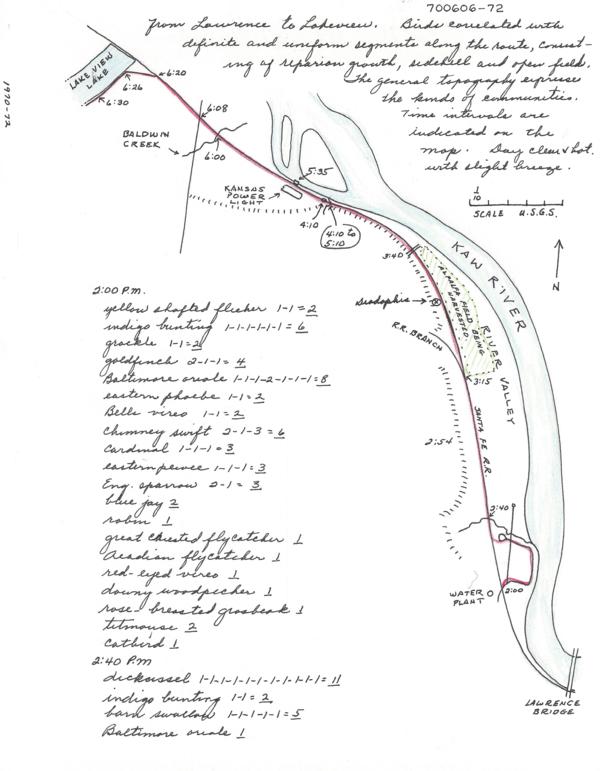 700606-72
From Lawrence to Lakeview. Birds correlated with
definite and uniform segments along the route, consist-
ing of reparian growth, sidehill and open field.
The general topography expresses
the kinds of communities.
Time intervals are
indicated on the
map. Day clear & hot.
with slight breeze.
1970-72
LAKE VIEW
LAKE
6:20
6:26
6:30
6:08
BALDWIN
CREEK
6:00
5:35
KANSAS
POWER
LIGHT
4:10
4:10 to
5:10
1/10
SCALE U.S.G.S.
N
KAW RIVER
3:40
Diadophis
ALFALFA FIELD BEING
HARVESTED
RIVER VALLEY
R.R. BRANCH
3:15
SANTA FE R.R.
2:54
2:40
WATER
PLANT
2:00
LAWRENCE
BRIDGE
2:00 P.M.
yellow shafted flicker 1-1=2
indigo bunting 1-1-1-1-1-1=6
grackle 1-1=2
goldfinch 2-1-1=4
Baltimore oriole 1-1-1-2-1-1-1=8
eastern phoebe 1-1=2
Bells vireo 1-1=2
Chimney swift 2-1-3=6
Cardinal 1-1-1=3
eastern pewee 1-1-1=3
Eng. sparrow 2-1=3
blue jay 2
robin 1
great crested flycatcher 1
Acadian flycatcher 1
red-eyed vireo 1
downy woodpecker 1
rose-breasted grosbeak 1
titmouse 2
Catbird 1
2:40 P.M
dickcissel 1-1-1-1-1-1-1-1-1-1-1=11
indigo bunting 1-1=2
barn swallow 1-1-1-1-1=5
Baltimore oriole 1